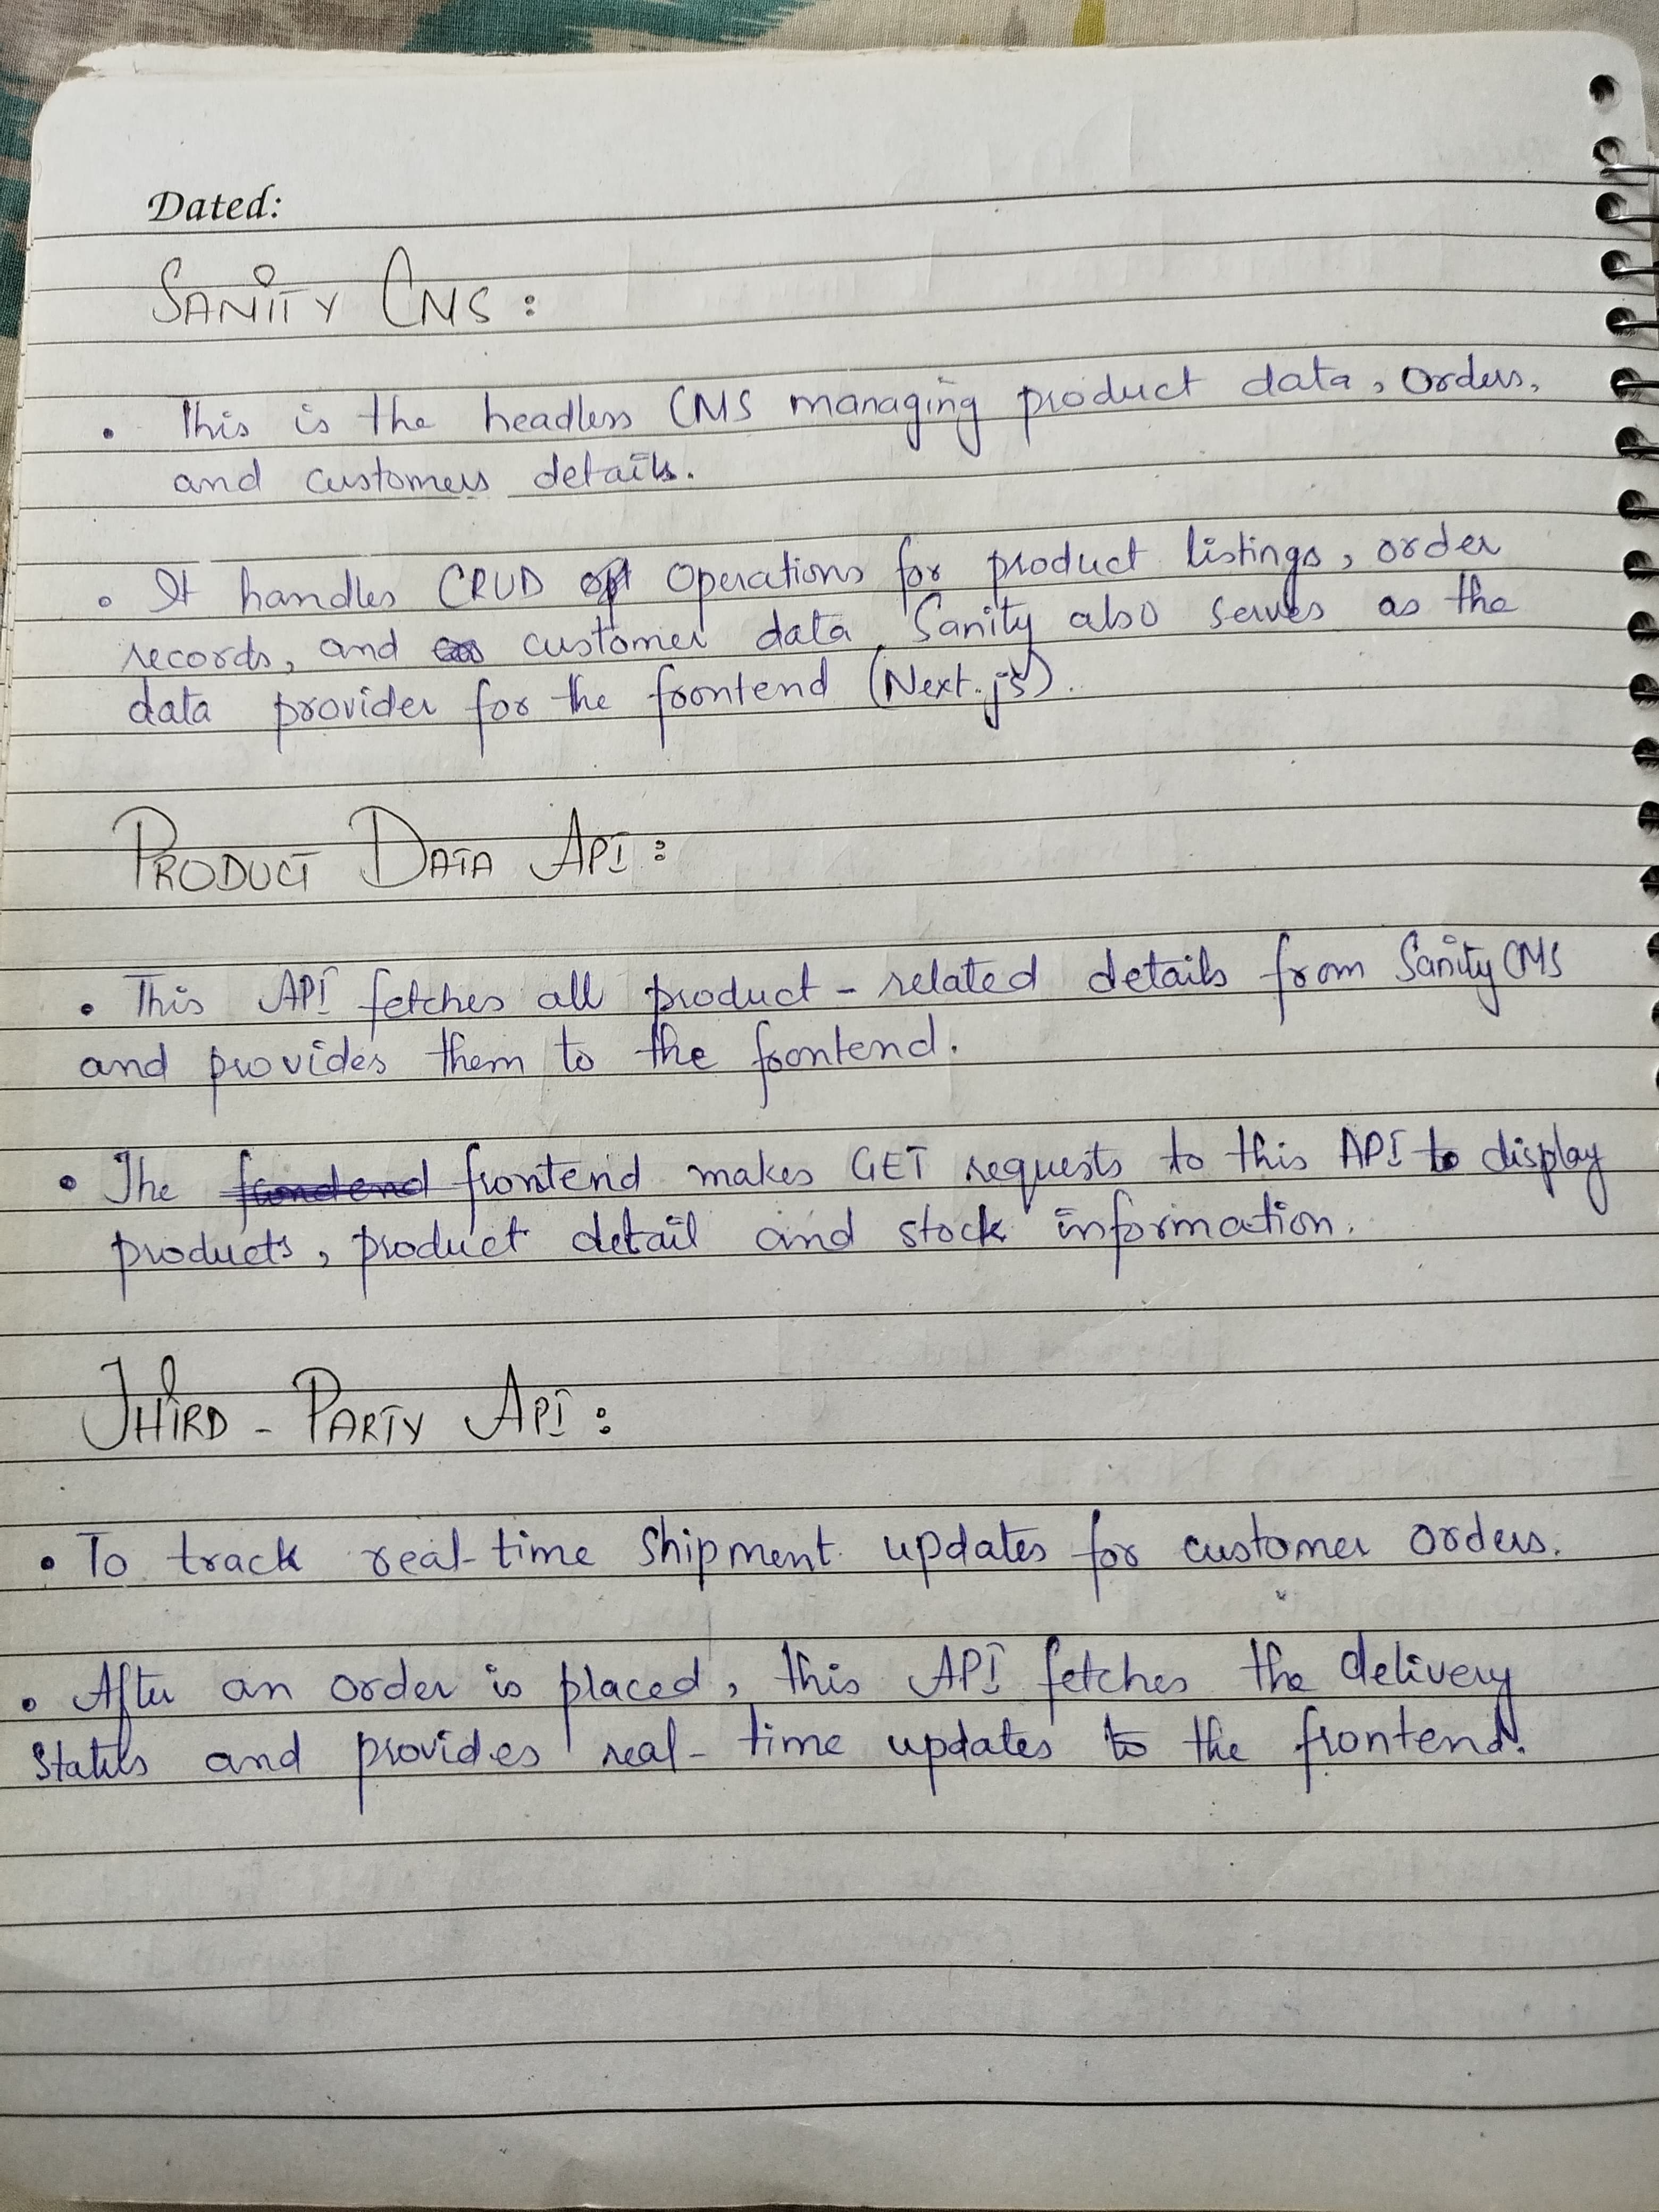 Dated:
SANITY CMS :
• This is the headless CMS managing product data, Orders,
and customers details.
• It handles CRUD Operations for product listings, order
records, and customer data. Sanity also serves as the
data provider for the frontend (Next.js).
PRODUCT DATA API :
• This API fetches all product - related details from Sanity CMS
and provides them to the frontend.
• The frontend makes GET requests to this API to display
products, product detail and stock information.
THIRD - PARTY API :
• To track real-time Shipment updates for customer orders.
• After an order is placed, this API fetches the delivery
status and provides real-time updates to the frontend.